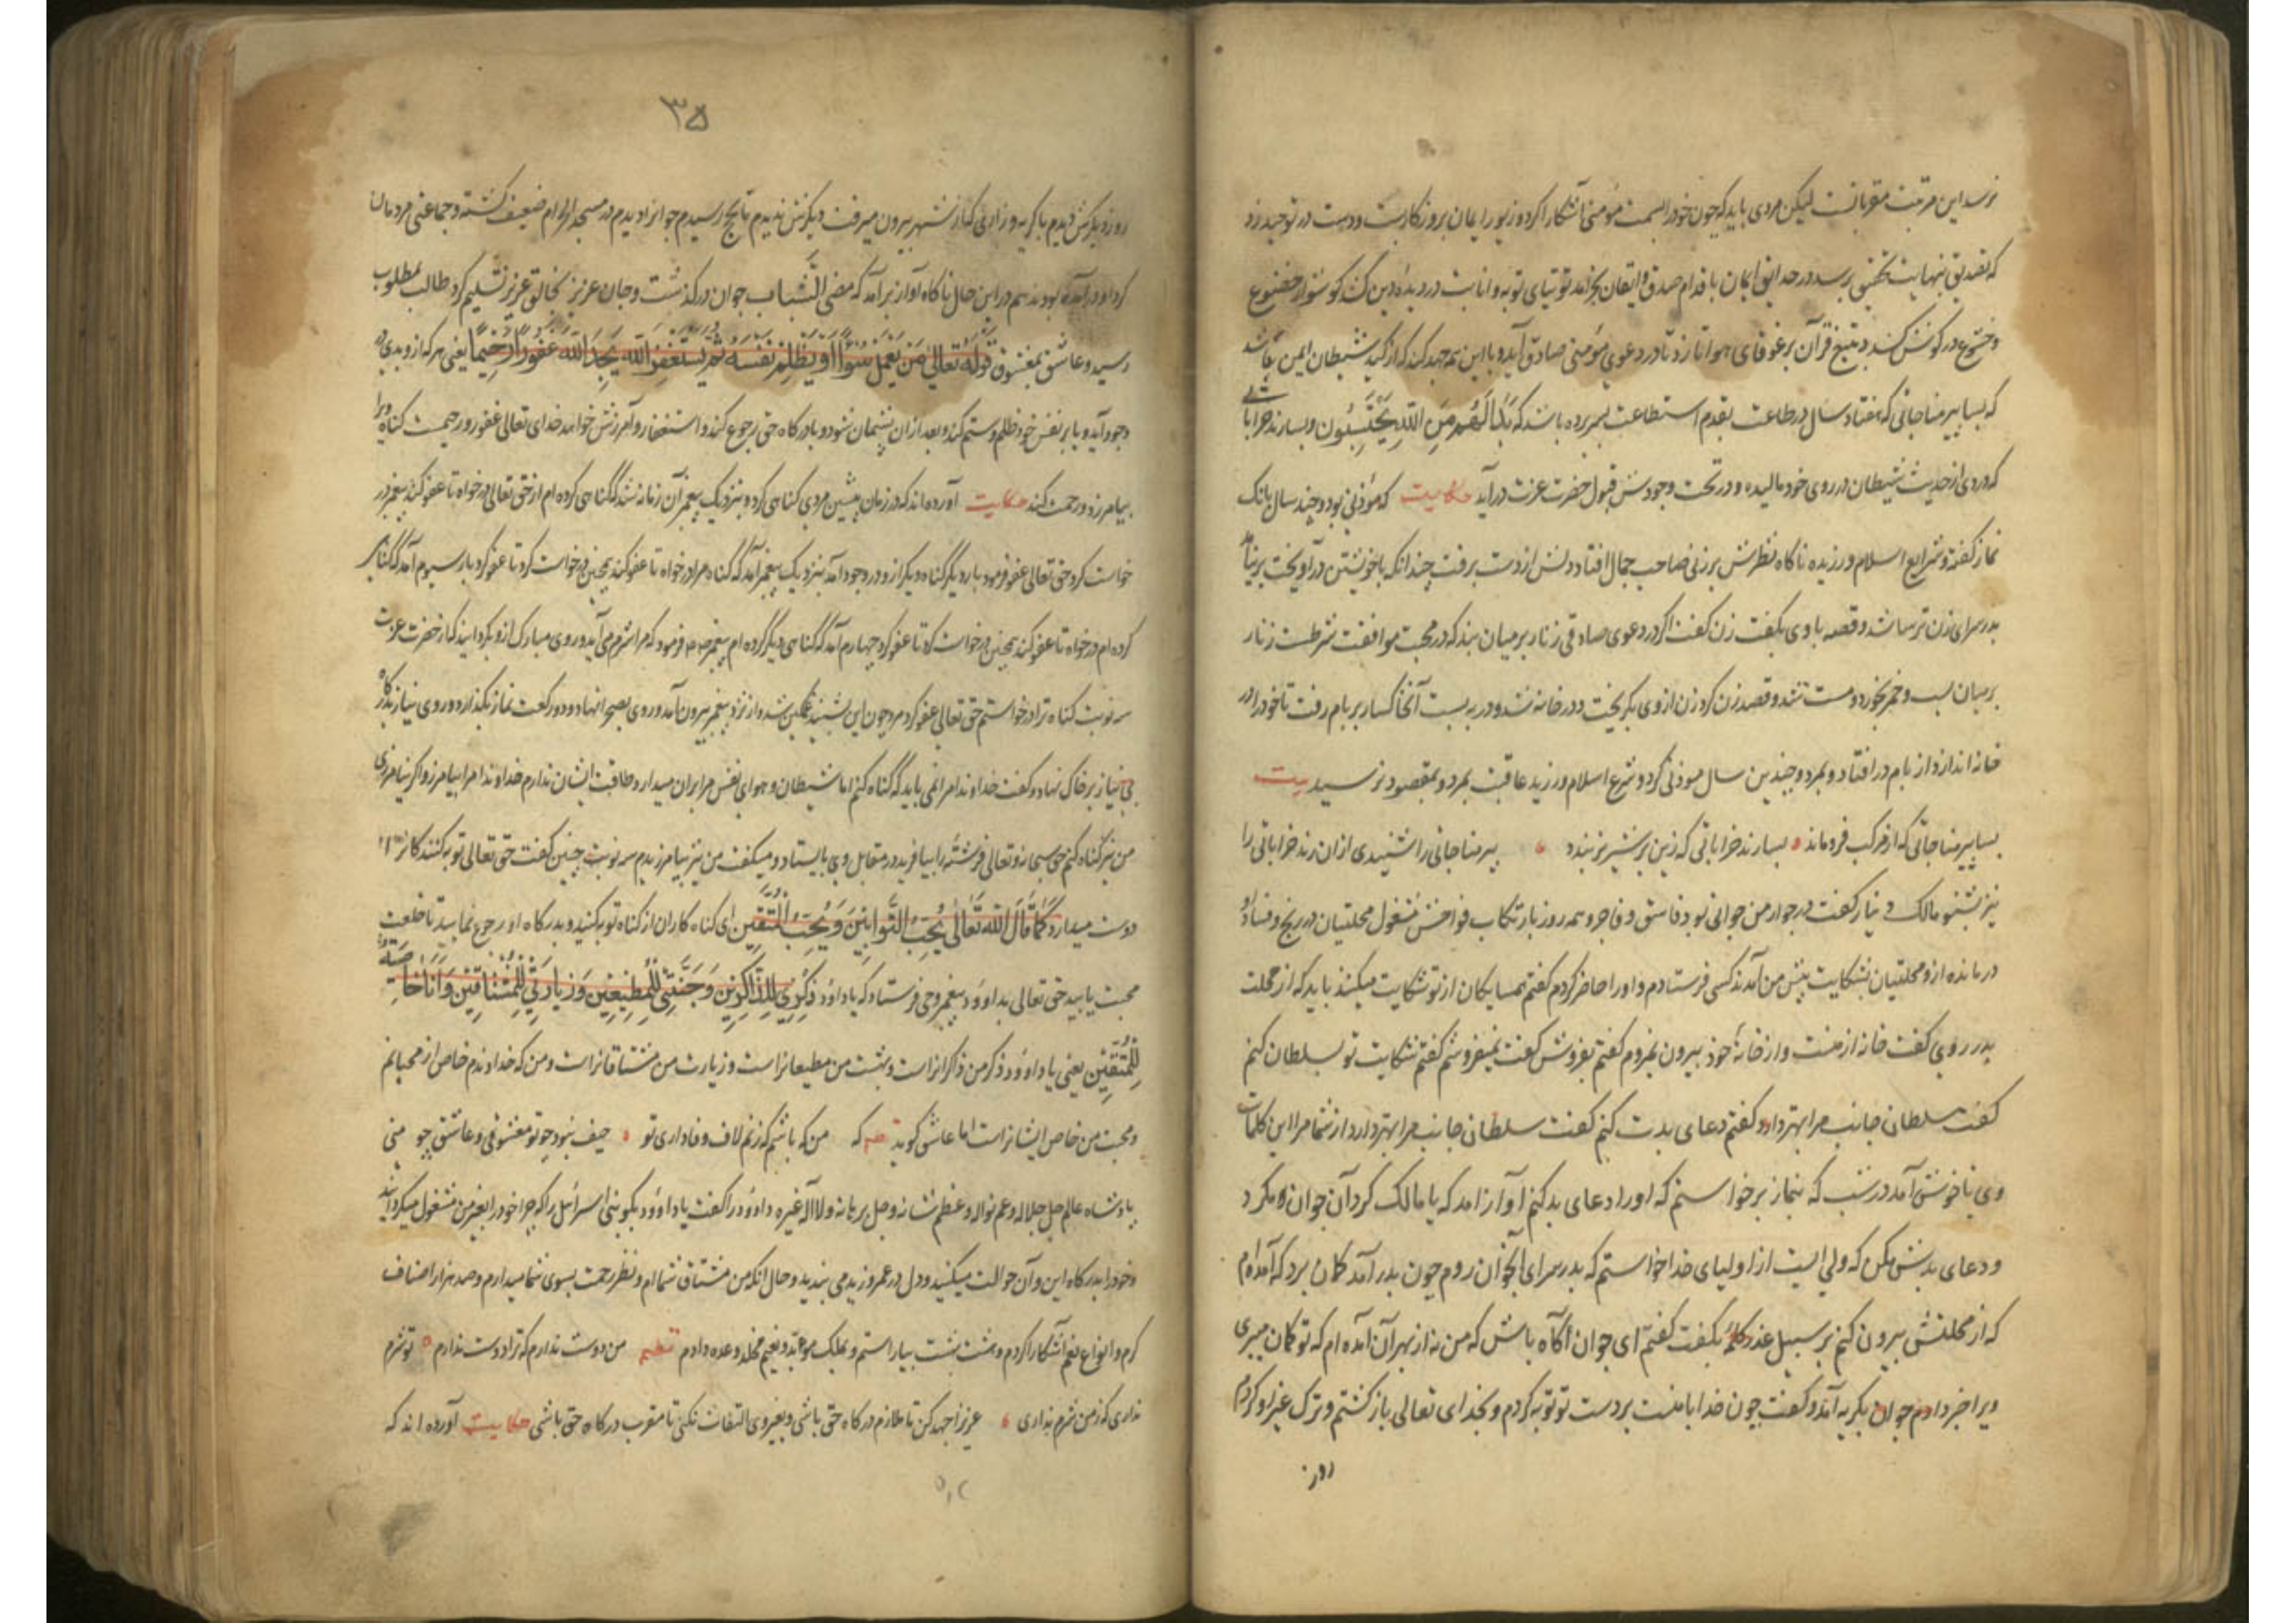 نرسد این مرتبت مقربانست لیکن مردی باید که چون خود را بسمت مؤمنی آشکارا کرد و زیور ایمان بر و نکارست و دست در توحید زد
که تصدیق بنهایت تحقیق برسد و در حدایق ایمان باقدام صدق و ایقان بخرامد توتیای توبه و انابت در دیده دین کشد گوشوار خضوع
و خشوع در گوش کند و بتیغ قرآن بر غوغای هوا تازد تا در دعوی مؤمنی صادق آید و با این همه جهد کند که از کید شیطان ایمن باشد
که بسا پیر مناجاتی که هفتاد سال در طاعت بقدم استطاعت بسر برده باشد که بَدَا لَهُمْ مِنَ اللهِ يَحْتَسِبُون و بسا رند خراباتی
که دردی از حدیث شیطان در روی خود مالیده و در تحت وجودش قبول حضرت عزت درآید حکایت که مؤذنی بود و چند سال بانک
نماز کفته و شرایع اسلام ورزیده ناکاه نظرش بر زنی صاحب جمال افتاد و دلش از دست برفت چندانکه با خویشتن درآویخت بر نیامد
بدر سرای زن ترسا شد و قصه با وی بکفت زن کفت اکر در دعوی صادقی زنار بر میان بند که در محبت موافقت شرطست زنار
بر میان بست و خمر بخورد و مست شد و قصد زن کرد زن از وی بکریخت و در خانه شد و در ببست آنخاکسار بر بام رفت تا خود را در
خانه اندازد از بام در افتاد و بمرد و چندین سال موذنی کرد و شرع اسلام ورزید عاقبت بمرد و بمقصود نرسید بیت
بسا پیر مناجاتی که از مرکب فرو ماند بسا رند خراباتی که زین بر شیر نر بندد پیر مناجاتی را شنیدی از ان رند خراباتی را
نیز بشنو مالک دینار کفت در جوار من جوانی بود فاسق و فاجر و همه روز بارتکاب فواحش مشغول محلتیان در رنج و فساد او
درمانده از و محلتیان بشکایت پیش من آمدند کسی فرستادم و او را حاضر کردم کفتم همسایکان از تو شکایت میکنند باید که از محلت
بدر روی کفت خانه از منست و از خانهٔ خود بیرون نمیروم کفتم بفروش کفت نمیفروشم کفتم شکایت تو بسلطان کنم
کفت سلطان جانب مرا بهتر دارد کفتم دعای بدت کنم کفت سلطان جانب مرا بهتر دارد از شما مرا این کلمات
وی ناخوش آمد در شب که بنماز برخواستم که او را دعای بد کنم آواز آمد که یا مالک کرد آن جوان مکرد
و دعای بدش مکن که ولی ایست از اولیای خدا خواستم که بدر سرای آنجوان روم چون بدر آمد کمان برد که آمده ام
که از محلتش بیرون کنم بر سبیل عذر کلمهٔ بکفت کفتم ای جوان آکاه باش که من نه از بهر آن آمده ام که تو کمان میبری
ویرا خبر دادم جوان بکریه آمد و کفت چون خدا با منست بر دست تو توبه کردم و بخدای تعالی باز کشتم و ترک غیر او کردم
روز
۳۵
روز دیکرش دیدم با کریه و زاری کنار شهر بیرون میرفت دیکرش ندیدم تا بحج رسیدم جوانرا دیدم در مسجد الحرام ضعیف کشته و جماعتی مردمان
کرد او درآمده بودند هم در این حال ناکاه آواز برآمد که مضی الشباب جوان درکذشت و جان عزیز بخالق عزیز تسلیم کرد طالب بمطلوب
رسید و عاشق بمعشوق قَولُهُ تَعالیٰ مَن يَعْمَل سُوءًا أَو يَظْلِمْ نَفْسَهُ ثُمَّ يَسْتَغفِرِ اللهَ يَجِدِ اللهَ غَفُورًا رَحِيمًا یعنی هر که از و بدی
بوجود آید و یا بر نفس خود ظلم و ستم کند و بعد از ان پشیمان شود و با درکاه حق رجوع کند و استغفار و آمرزش خواهد خدای تعالی غفور و رحیمست کناه ویرا
بیامرزد و رحمت کند حکایت آورده اند که در زمان پیشین مردی کناهی کرد و بنزدیک پیغمبر آن زمانه شد که کناهی کرده ام از حق تعالی درخواه تا عفو کند پیغمبر در
خواست کرد حق تعالی عفو فرمود بار دیکر کناه دیکر از و در وجود آمد بنزدیک پیغمبر آمد که کناه مرا درخواه تا عفو کند همچنین درخواست کرد تا عفو کرد بار سیوم آمد که کناه
کرده ام درخواه تا عفو کند همچنین درخواست کرد تا عفو کرد چهارم آمد که کناهی دیکر کرده ام پیغمبر فرمود که مرا شرم می آید و روی مبارک از و بکردانید که از حضرت عزت
سه نوبت کناه ترا درخواستم حق تعالی عفو کرد مرد چون این بشنید غمکین شد و از نزد پیغمبر بیرون آمد و روی بصحرا نهاد و دو رکعت نماز بکذارد و روی نیاز بدرکاه
بی نیاز بر خاک نهاد و کفت خداوندا مرا نمی باید که کناه کنم اما شیطان و هوای نفس مرا بران میدارد و طاقت ایشان ندارم خداوندا مرا بیامرز و اکر نیامرزی
من نیز کناه کنم حق سبحانه و تعالی فرشته را بیافرید در مقابل وی بایستاد و میکفت من نیز بیامرزیدم سه نوبت چنین کفت حق تعالی توبه کنندکانرا
دوست میدارد کَمَا قَالَ اللهُ تَعَالَیٰ يُحِبُّ التَّوَّابِينَ وَيُحِبُّ الْمُتَّقِين ای کناه کاران از کناه توبه کنید و بدرکاه او رجوع نمایید تا خلعت
محبت یابید حق تعالی بداوود پیغمبر وحی فرستاد که یا داوُد ذِکْرِي لِلذَّاكِرِينَ وَجَنَّتِي لِلْمُطِيعِينَ وَزِيَارَتِي لِلْمُشْتَاقِينَ وَأَنَا خَاصَّةٌ
لِلْمُتَّقِين یعنی یا داوود ذکر من ذاکرانراست و بهشت من مطیعانراست و زیارت من مشتاقانراست و من که خداوندم خاص از محبانم
و محبت من خاص ایشانراست اما عاشق کوید که من که باشم که زنم لاف وفاداری تو حیف نبود چو تو معشوقی و عاشق چو منی
پادشاه عالم جل جلاله و عم نواله و عظم شانه و جل برهانه و لا اله غیره داوُد را کفت یا داوُود بکو بنی اسرائیل را که چرا خود را بغیر من مشغول میکردانید
و خود را بدرکاه این و آن حوالت میکنید و دل در عمرو و زید می بندید و حال انکه من مشتاق شما ام و نظر رحمت بسوی شما میدارم و صد هزار اصناف
کرم و انواع نعم آشکارا کردم و هشت بهشت بیاراستم و بملک مؤبد و نعیم مخلد وعده دادم نظم من دوست ندارم که ترا دوست ندارم تو شرم
نداری که ز من شرم نداری عزیزا جهد کن تا ملازم درکاه حق باشی و بغیر وی التفات نکنی تا مقرب درکاه حق باشی حکایت آورده اند که